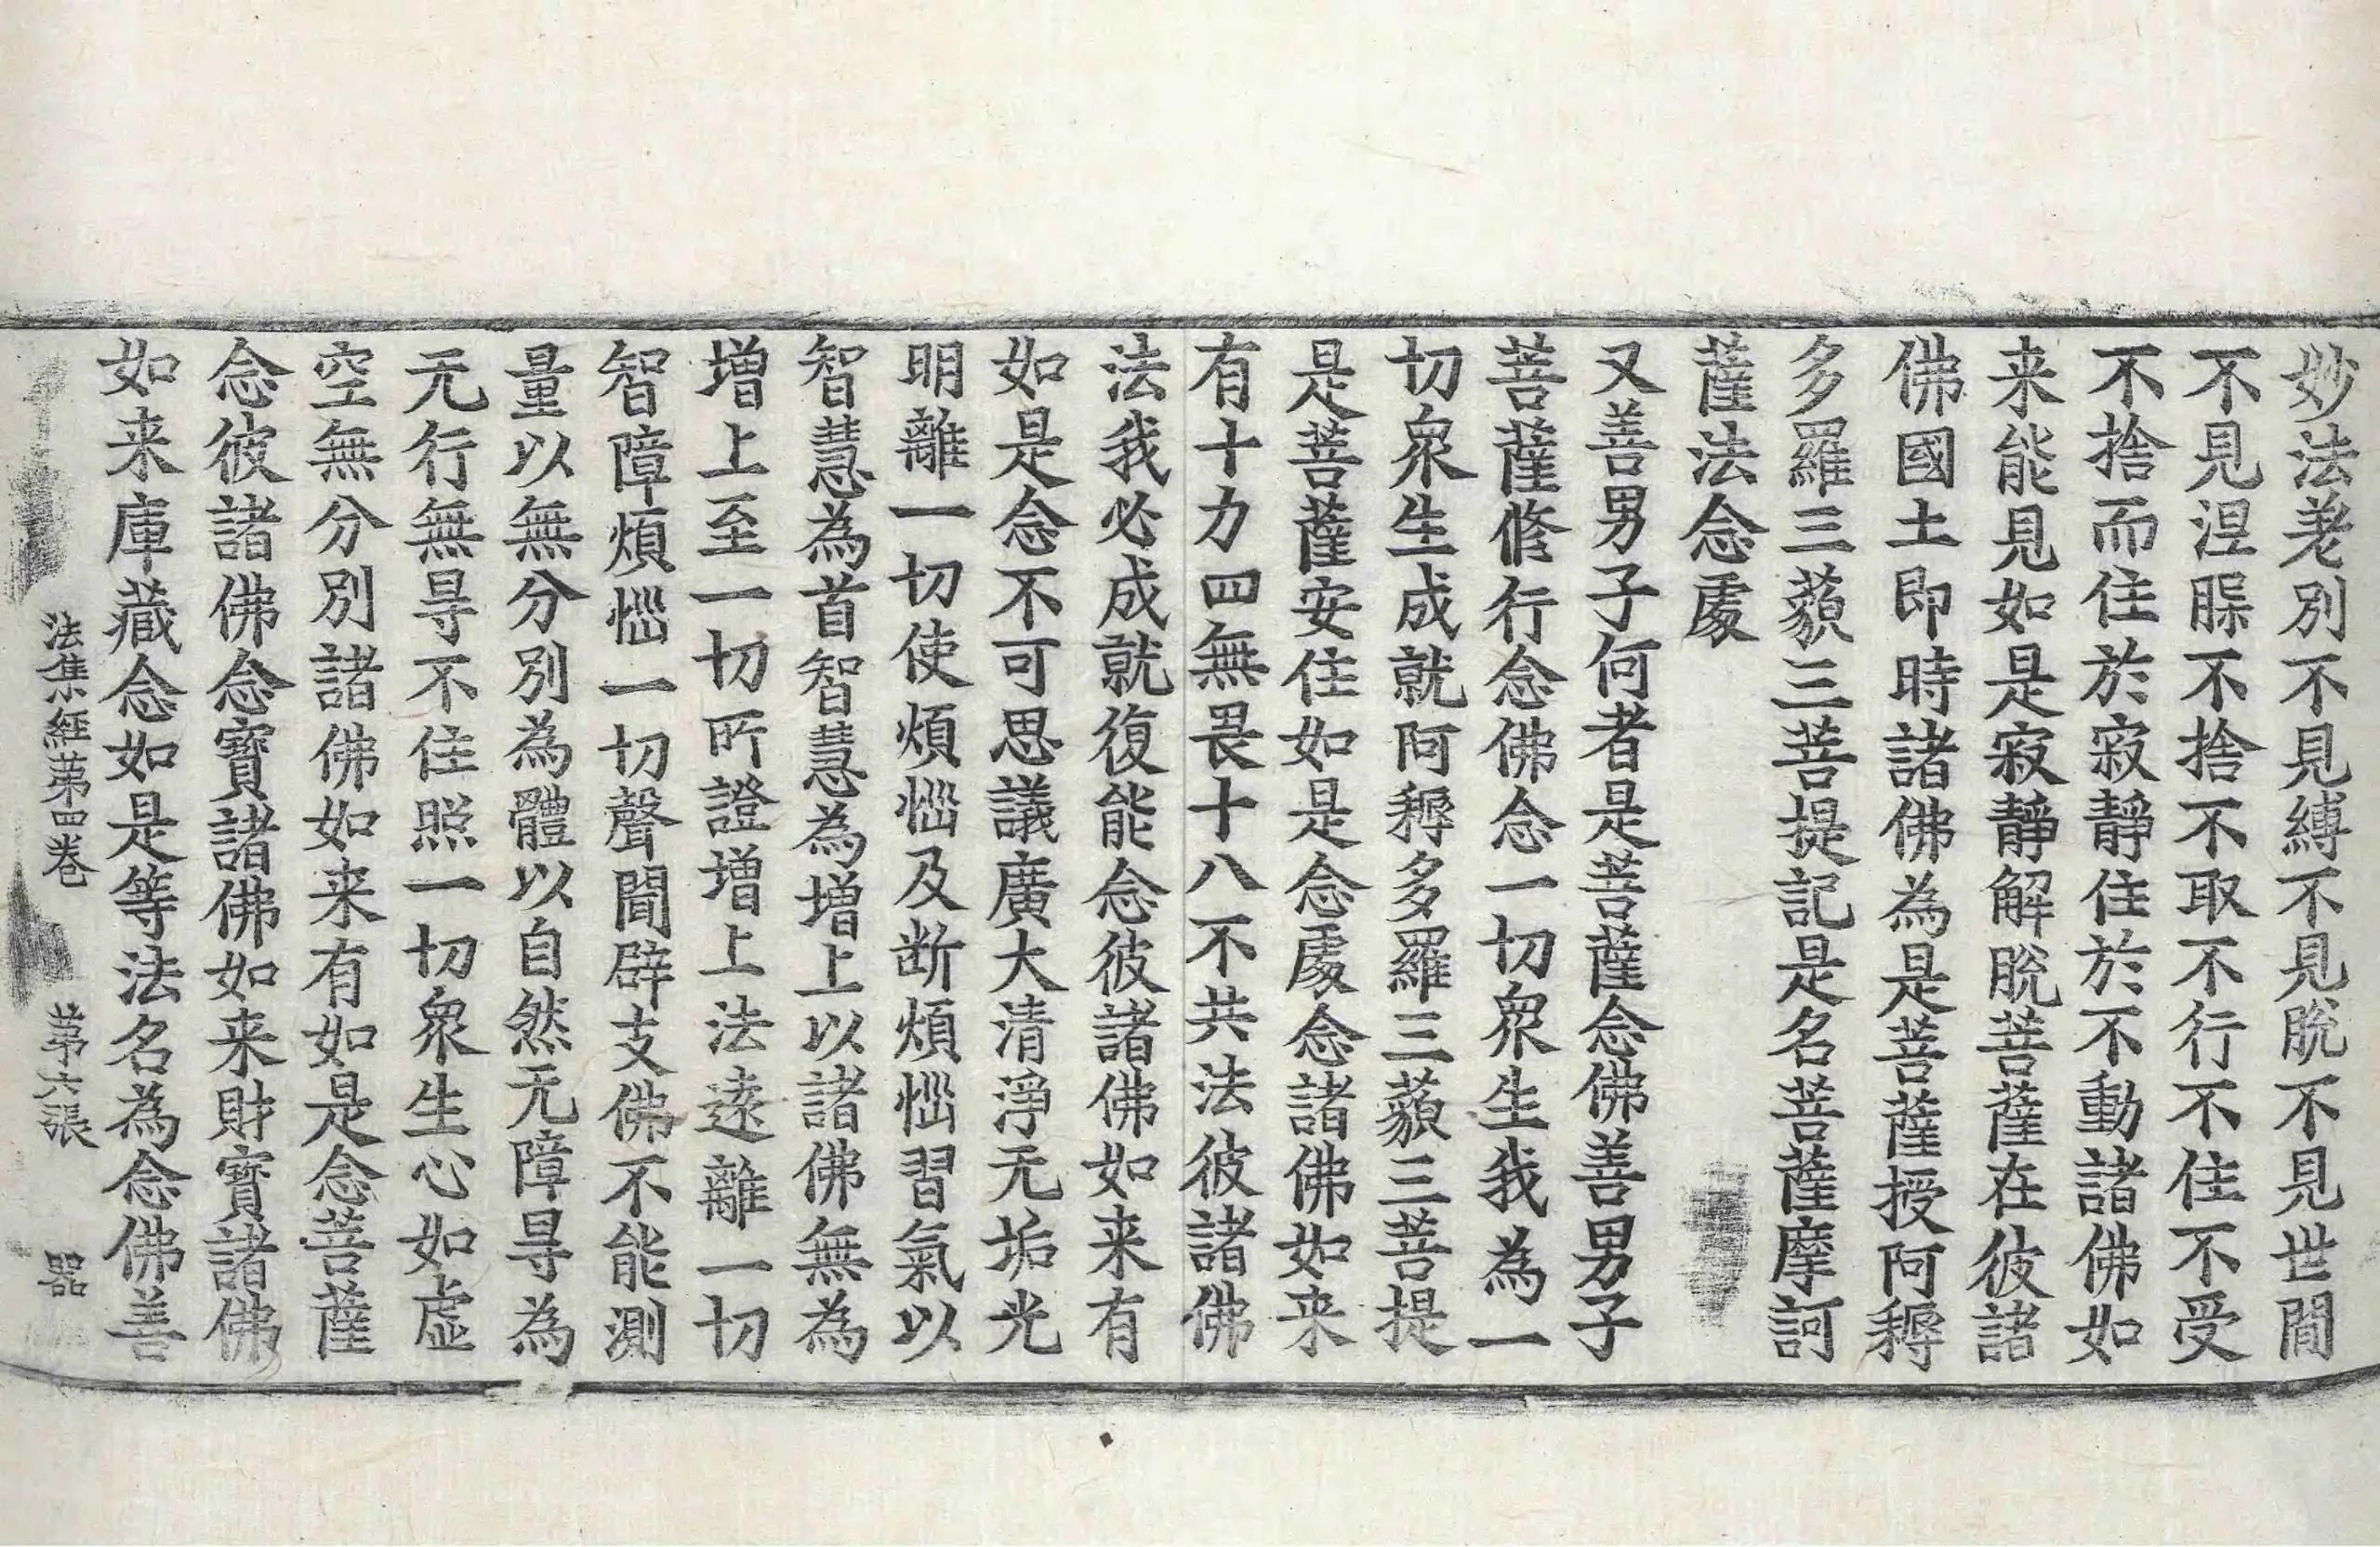 妙法差別不見縛不見脫不見世間
不見涅槃不捨不取不行不住不受
不捨而住於寂靜住於不動諸佛如
来能見如是寂靜解脫菩薩在彼諸
佛國土即時諸佛為是菩薩授阿耨
多羅三藐三菩提記是名菩薩摩訶
薩法念處
又善男子何者是菩薩念佛善男子
菩薩修行念佛念一切衆生我為一
切衆生成就阿耨多羅三藐三菩提
是菩薩安住如是念處念諸佛如来
有十力四無畏十八不共法彼諸佛
法我必成就復能念彼諸佛如来有
如是念不可思議廣大清淨无垢光
明離一切使煩惱及断煩惱習氣以
智慧為首智慧為增上以諸佛無為
增上至一切所證增上法遠離一切
智障煩惱一切聲聞辟支佛不能測
量以無分別為體以自然无障㝵為
无行無㝵不住照一切衆生心如虛
空無分別諸佛如来有如是念菩薩
念彼諸佛念寶諸佛如来財寶諸佛
如来庫藏念如是等法名為念佛善
法集經第四卷 第六張 器